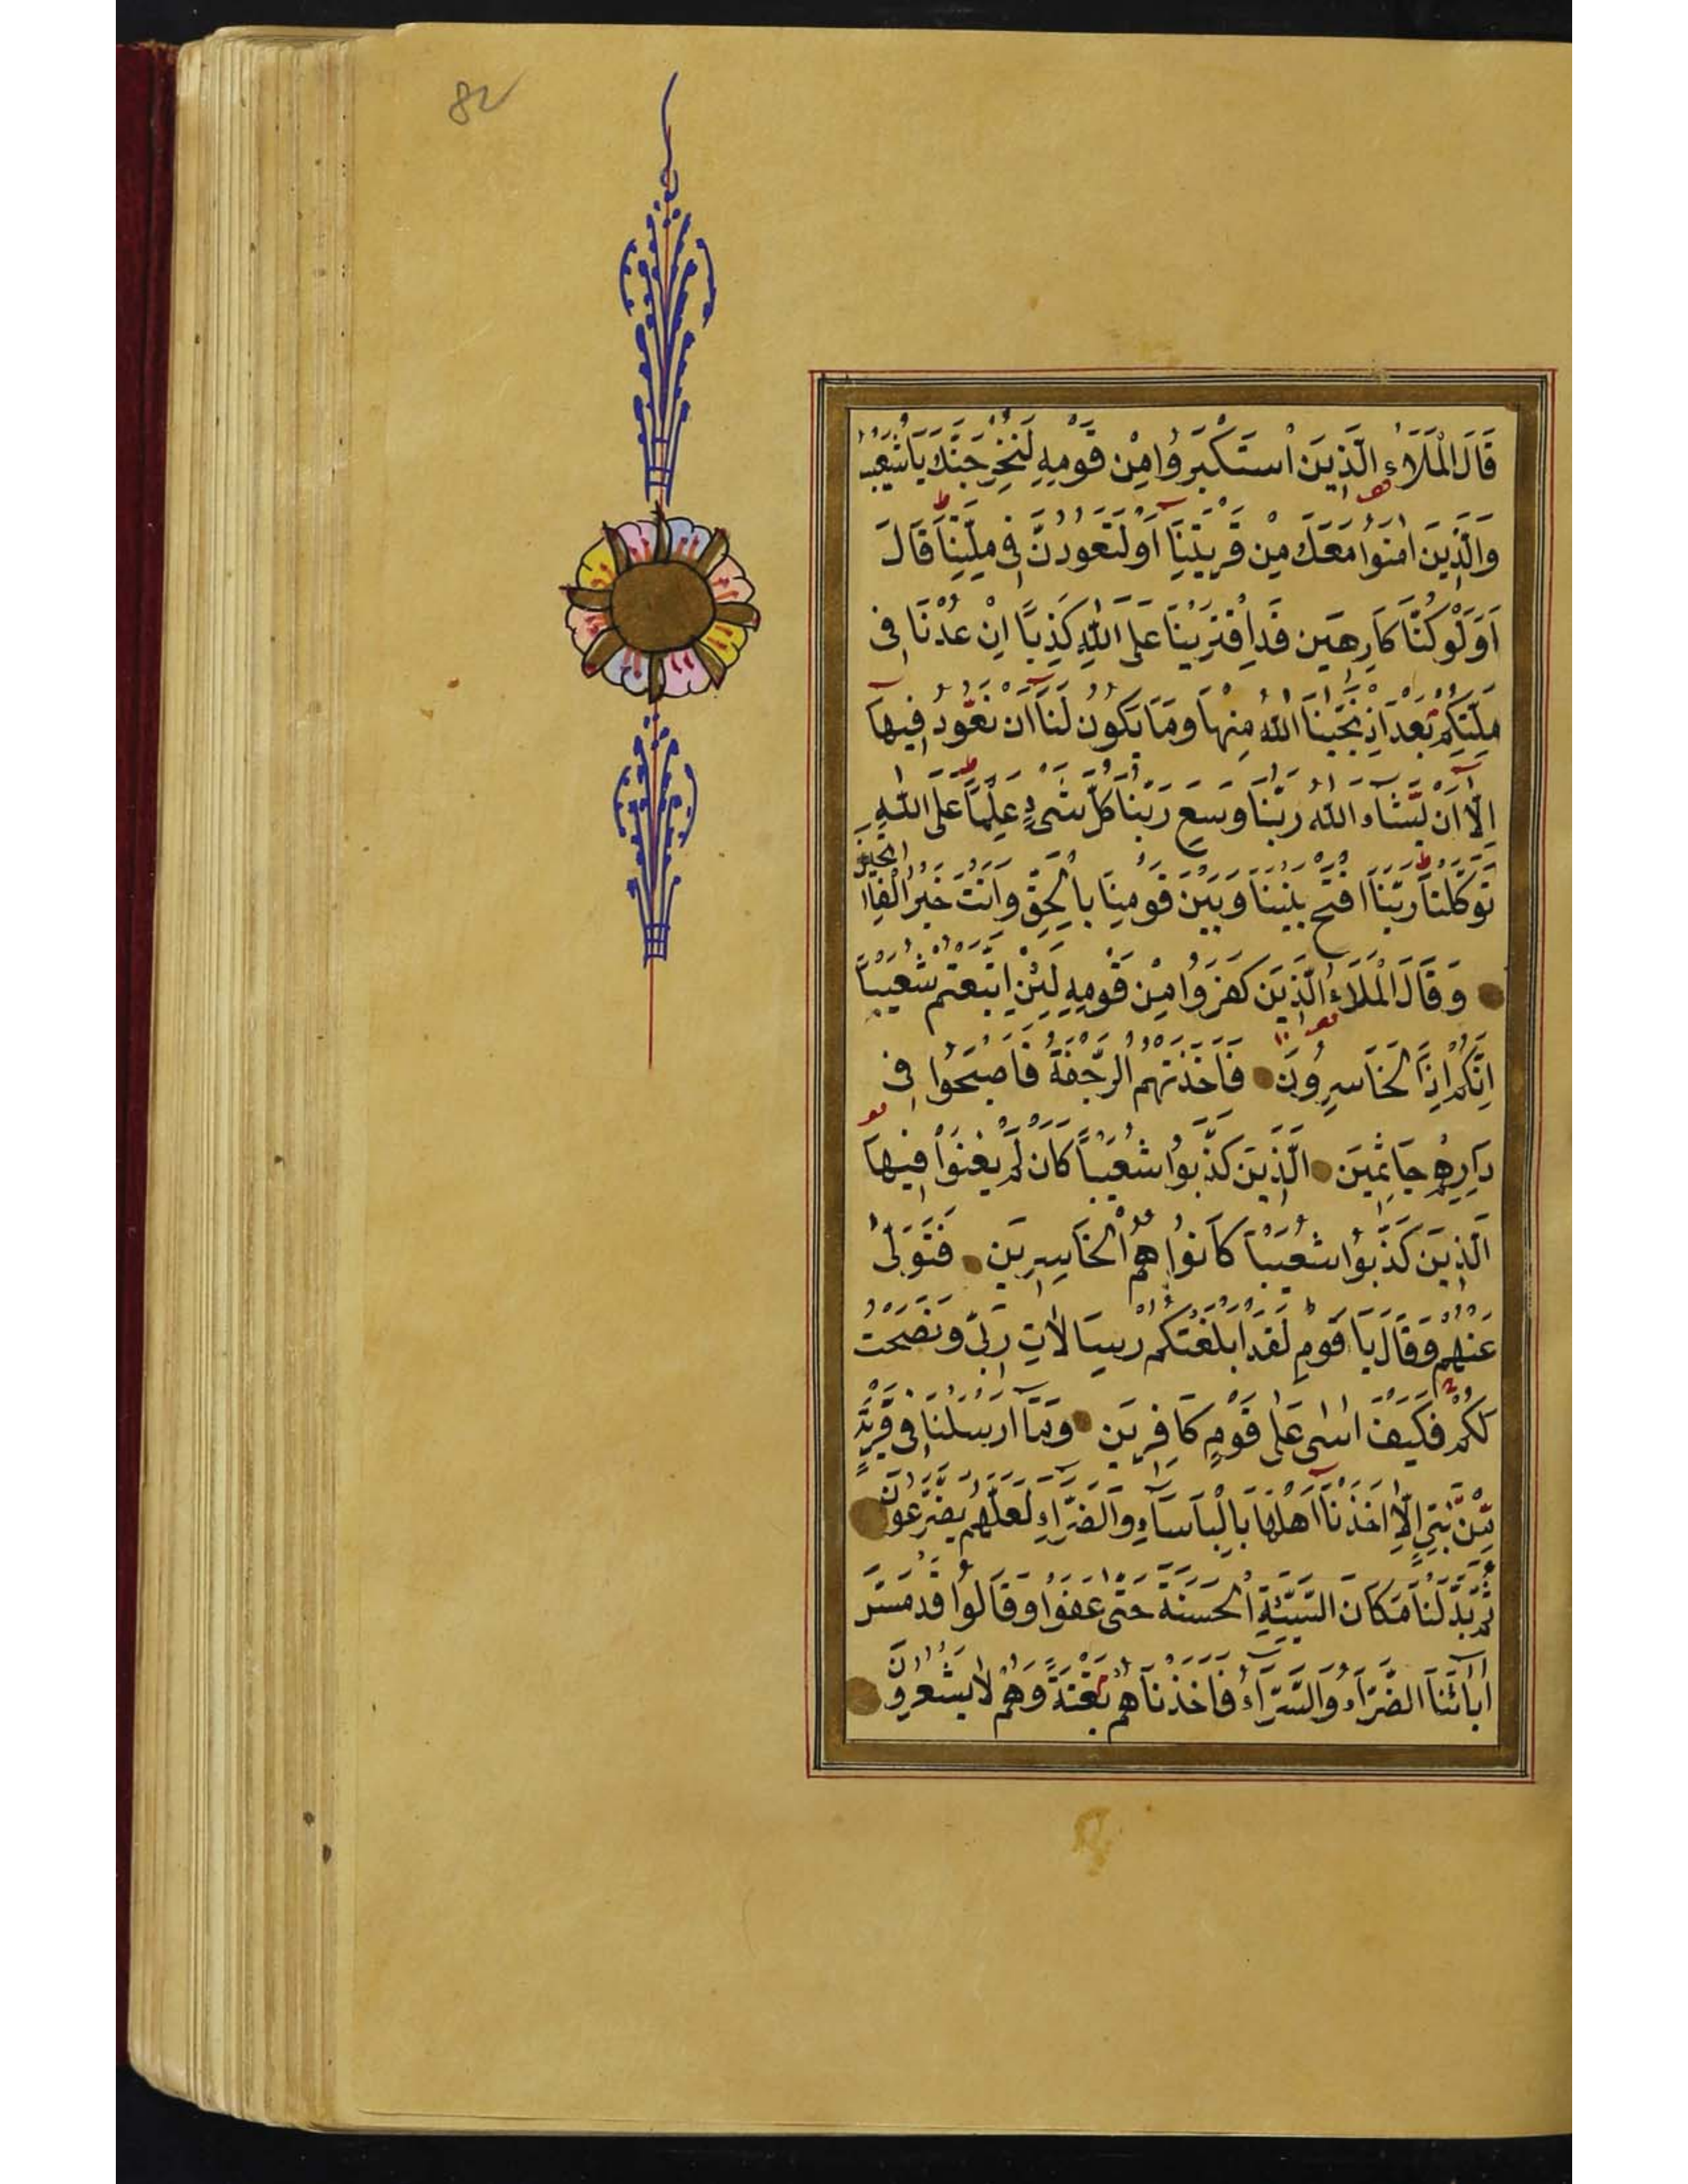 82
قَالَ الْمَلَاءُ الَّذِينَ اسْتَكْبَرُوا مِنْ قَوْمِهِ لَنُخْرِجَنَّكَ يَا شُعَيْبُ
وَالَّذِينَ اٰمَنُوا مَعَكَ مِنْ قَرْيَتِنَا اَوْ لَتَعُودُنَّ فِى مِلَّتِنَا قَالَ
اَوَلَوْ كُنَّا كَارِهِينَ قَدِ افْتَرَيْنَا عَلَى اللّٰهِ كَذِبًا اِنْ عُدْنَا فِى
مِلَّتِكُمْ بَعْدَ اِذْ نَجّٰينَا اللّٰهُ مِنْهَا وَمَا يَكُونُ لَنَا اَنْ نَعُودَ فِيهَا
اِلَّا اَنْ يَشَاءَ اللّٰهُ رَبُّنَا وَسِعَ رَبُّنَا كُلَّ شَىْءٍ عِلْمًا عَلَى اللّٰهِ
تَوَكَّلْنَا رَبَّنَا افْتَحْ بَيْنَنَا وَبَيْنَ قَوْمِنَا بِالْحَقِّ وَاَنْتَ خَيْرُ الْفَاتِحِينَ
وَقَالَ الْمَلَاءُ الَّذِينَ كَفَرُوا مِنْ قَوْمِهِ لَئِنْ اتَّبَعْتُمْ شُعَيْبًا
اِنَّكُمْ اِذًا لَخَاسِرُونَ فَاَخَذَتْهُمُ الرَّجْفَةُ فَاَصْبَحُوا فِى
دَارِهِمْ جَاثِمِينَ الَّذِينَ كَذَّبُوا شُعَيْبًا كَانْ لَمْ يَغْنَوْا فِيهَا
اَلَّذِينَ كَذَّبُوا شُعَيْبًا كَانُوا هُمُ الْخَاسِرِينَ فَتَوَلّٰى
عَنْهُمْ وَقَالَ يَا قَوْمِ لَقَدْ اَبْلَغْتُكُمْ رِسَالَاتِ رَبِّى وَنَصَحْتُ
لَكُمْ فَكَيْفَ اٰسٰى عَلٰى قَوْمٍ كَافِرِينَ وَمَا اَرْسَلْنَا فِى قَرْيَةٍ
مِنْ نَبِىٍّ اِلَّا اَخَذْنَا اَهْلَهَا بِالْبَاْسَاءِ وَالضَّرَّاءِ لَعَلَّهُمْ يَضَّرَّعُونَ
ثُمَّ بَدَّلْنَا مَكَانَ السَّيِّئَةِ الْحَسَنَةَ حَتّٰى عَفَوْا وَقَالُوا قَدْ مَسَّ
اٰبَائَنَا الضَّرَّاءُ وَالسَّرَّاءُ فَاَخَذْنَاهُمْ بَغْتَةً وَهُمْ لَا يَشْعُرُونَ